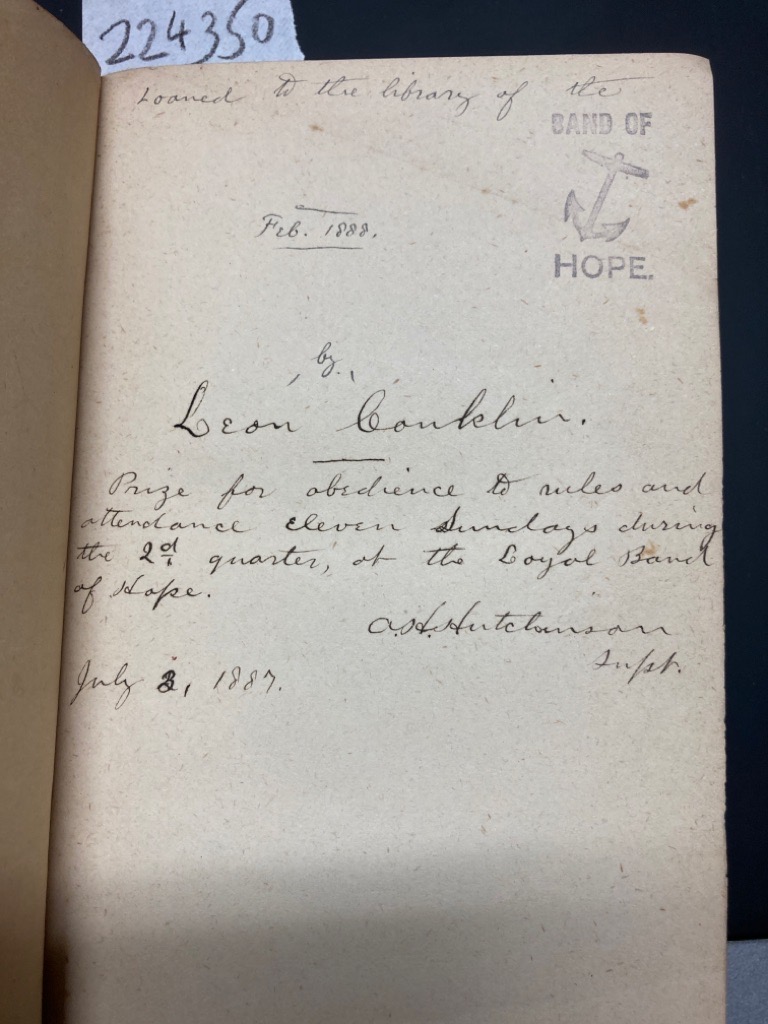 224350
Loaned to the library of the
BAND OF
HOPE.
Feb. 1888.
by
Leon Conklin.
Prize for obedience to rules and
attendance eleven Sundays during
the 2d quarter, at the Loyal Band
of Hope.
A.H. Hutchinson
Supt.
July 3, 1887.